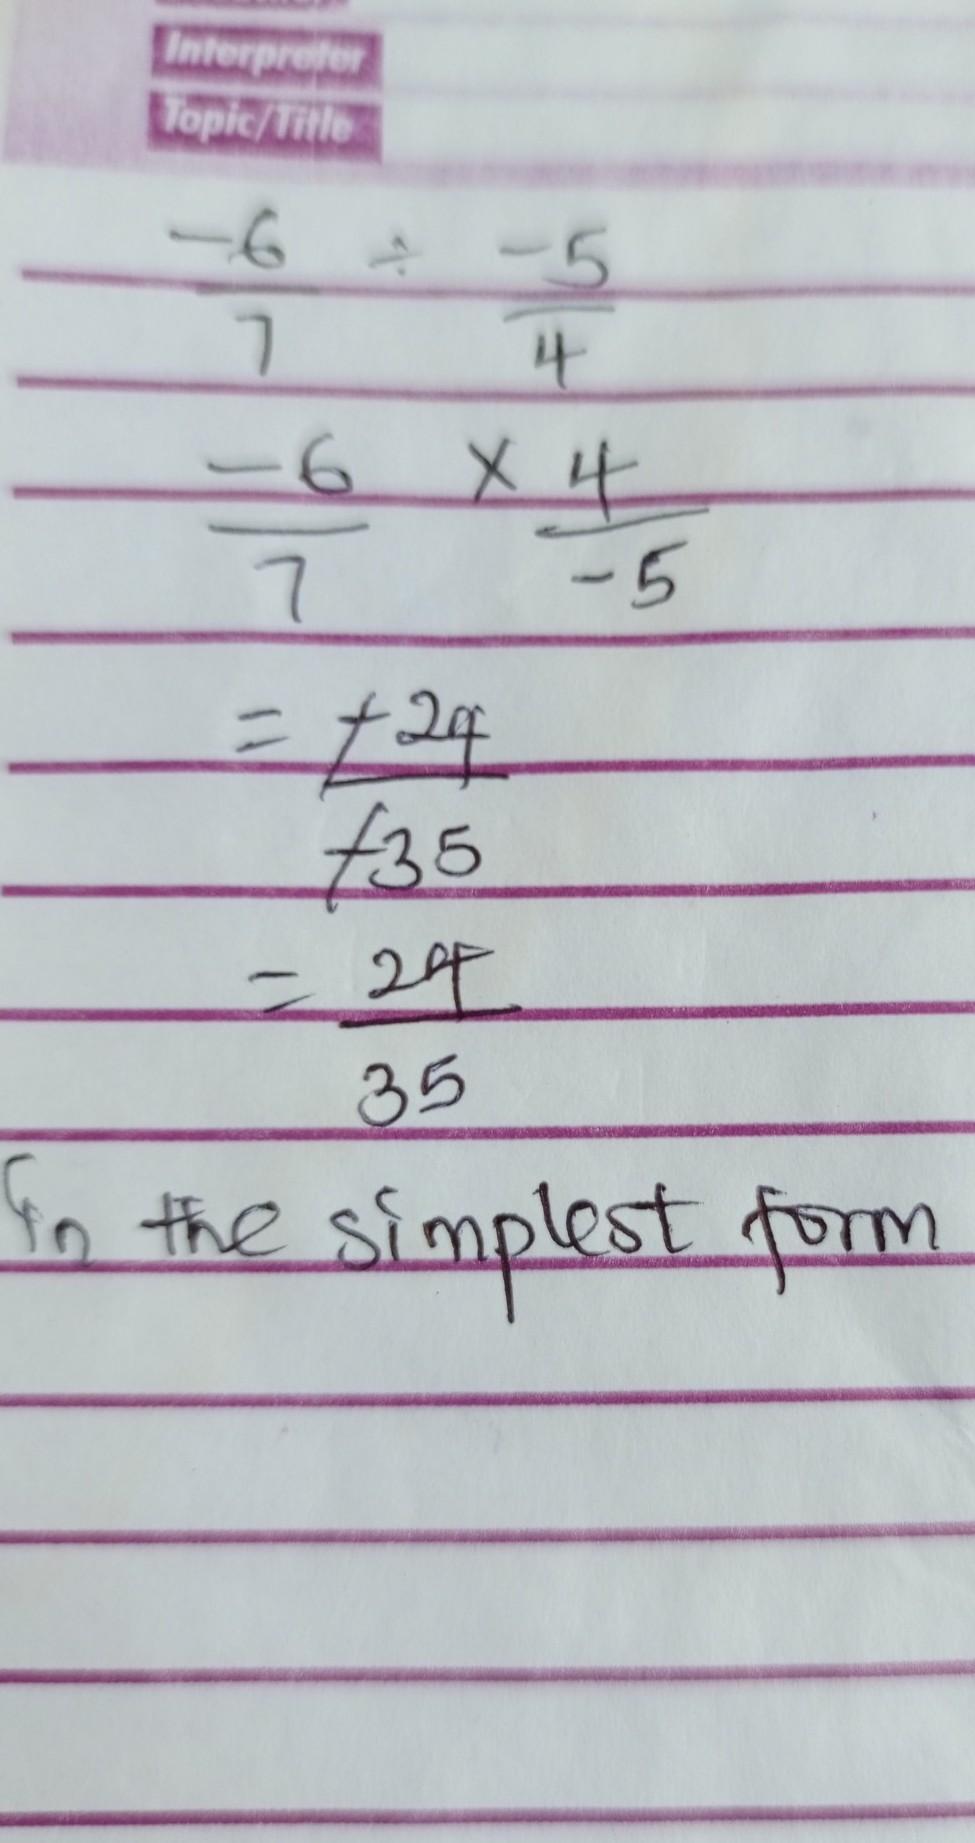 Interpreter
Topic/Title
-6/7 ÷ -5/4
-6/7 × 4/-5
= -24/-35
= 24/35
In the simplest form